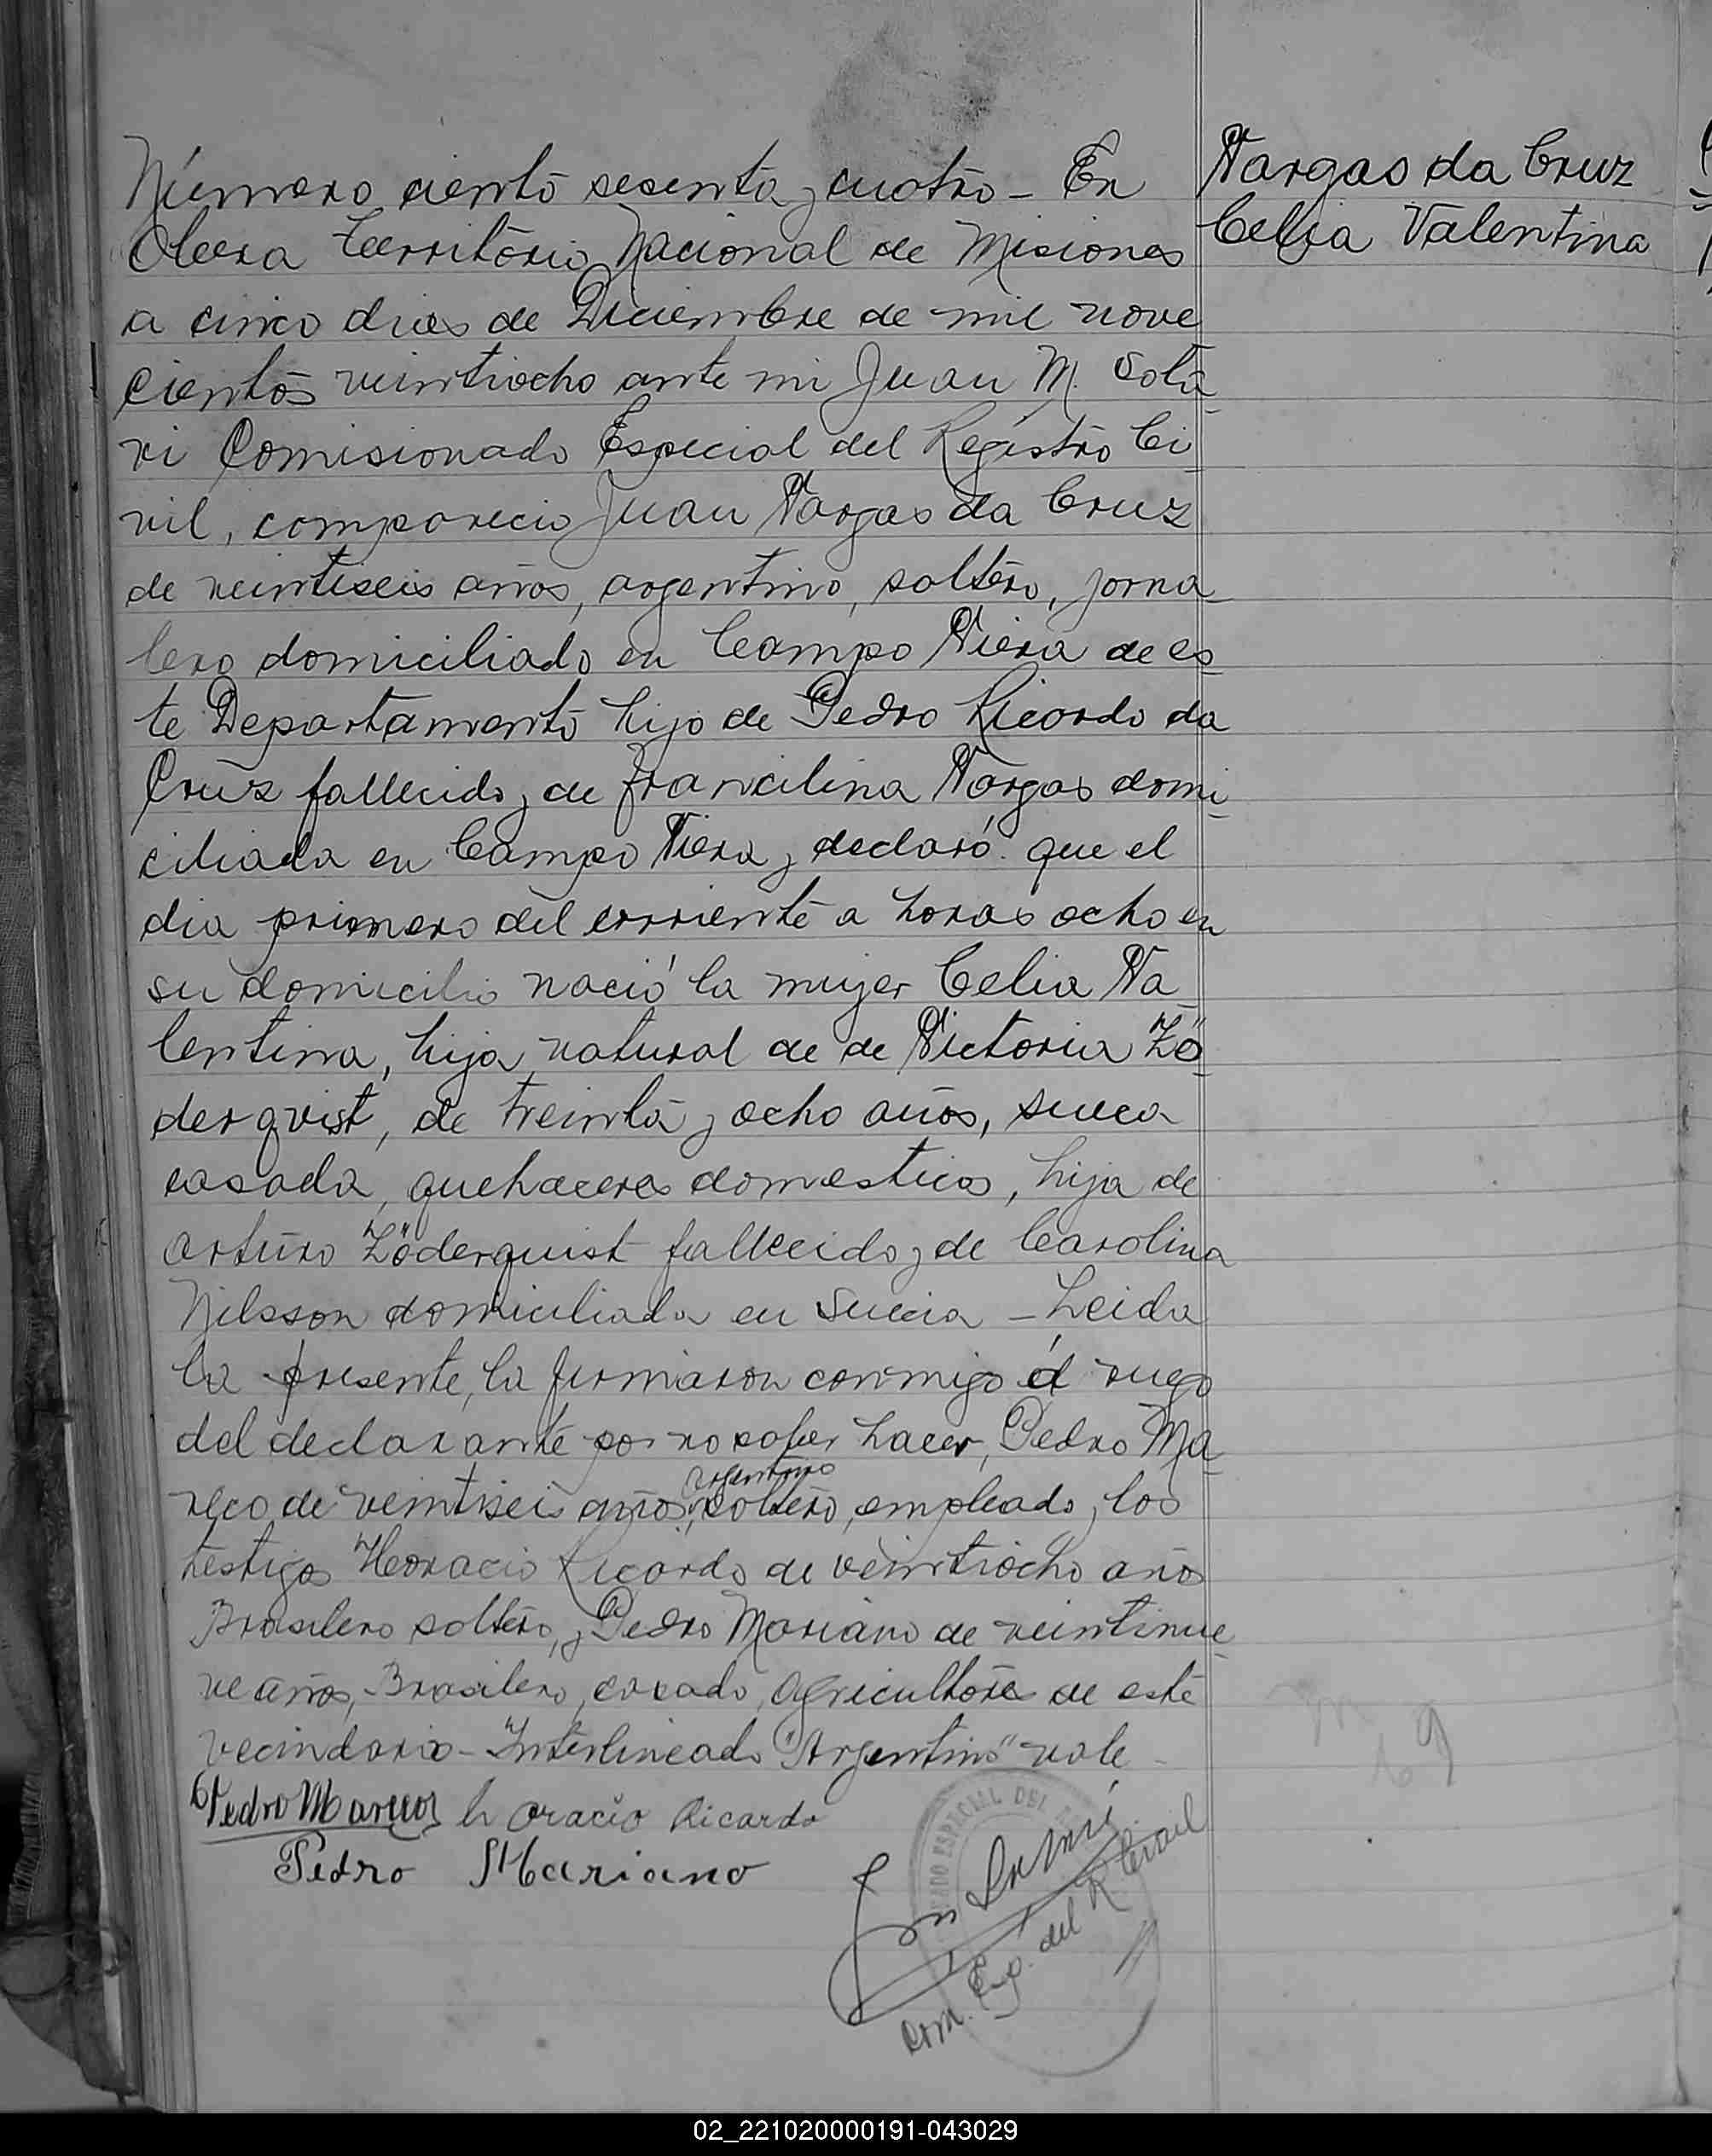 Número ciento sesenta y cuatro - En
Obera Territorio Nacional de Misiones
a cinco dias de Diciembre de mil nove
cientos veintiocho ante mi Juan M. Sota
vi Comisionado Especial del Registro Ci
vil, comparecio Juan Vargas da Cruz
de veintiseis años, argentino, soltero, jorna
lero domiciliado en Campo Viera de es
te Departamento hijo de Pedro Ricardo da
Cruz fallecido y de Francilina Vargas domi
ciliada en Campo Viera y declaró que el
dia primero del corriente a horas ocho en
su domicilio nació la mujer Celia Va
lentina, hija natural de de Victoria Zö
derqvist, de treinta y ocho años, sueca
casada, quehaceres domesticos, hija de
Arturo Zöderquist fallecido y de Carolina
Nilsson domiciliada en Suecia - Leida
la presente, la firmaron conmigo á ruego
del declarante por no saber hacer, Pedro Ma
reco de veintiseis años, argentino soltero, empleado y los
testigos Horacio Ricardo de veintiocho años
Brasilero soltero, y Pedro Mariano de veintinue
ve años, Brasilero, casado, agricultores de este
vecindario - Interlineado "Argentino" vale -
Pedro Marecos horacio Ricardo
Pedro Mariano
Com. Esp. del R. Civil
Vargas da Cruz
Celia Valentina
02_221020000191-043029